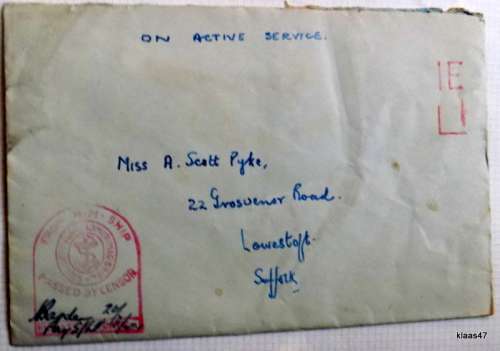 ON ACTIVE SERVICE.
E
Miss A. Scott Pyke,
22 Grosvenor Road.
Lowestoft.
Suffolk
FROM H·M·SHIP
PASSED BY CENSOR
klaas47